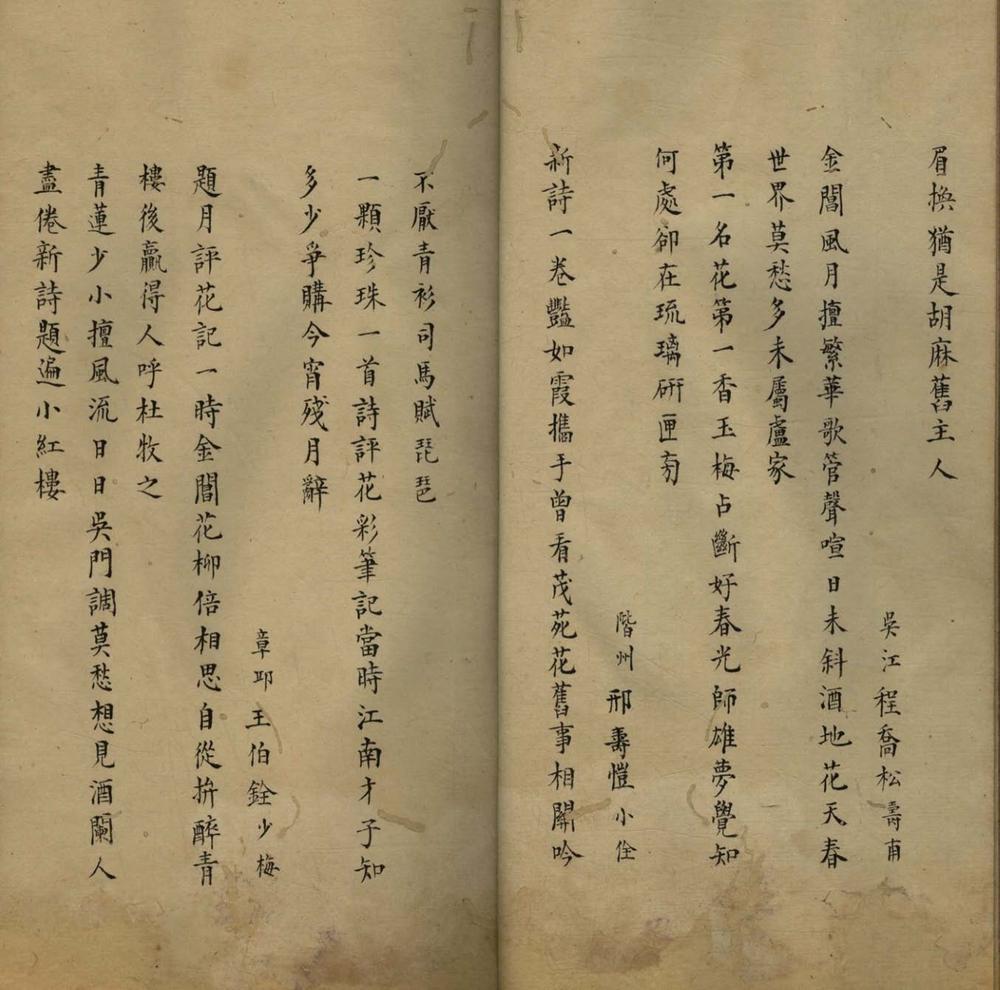 眉換猶是胡麻舊主人
吳江程喬松壽甫
金閶風月擅繁華歌管聲喧日未斜酒地花天春
世界莫愁多未屬盧家
第一名花第一香玉梅占斷好春光師雄夢覺知
何處卻在琉璃硏匣旁
階州邢壽愷小佺
新詩一卷豔如霞攜手曾看茂苑花舊事相關吟
不厭青衫司馬賦琵琶
一顆珍珠一首詩評花彩筆記當時江南才子知
多少爭購今宵殘月辭
章邱王伯銓少梅
題月評花記一時金閶花柳倍相思自從拚醉青
樓後贏得人呼杜牧之
青蓮少小擅風流日日吳門調莫愁想見酒闌人
盡倦新詩題遍小紅樓